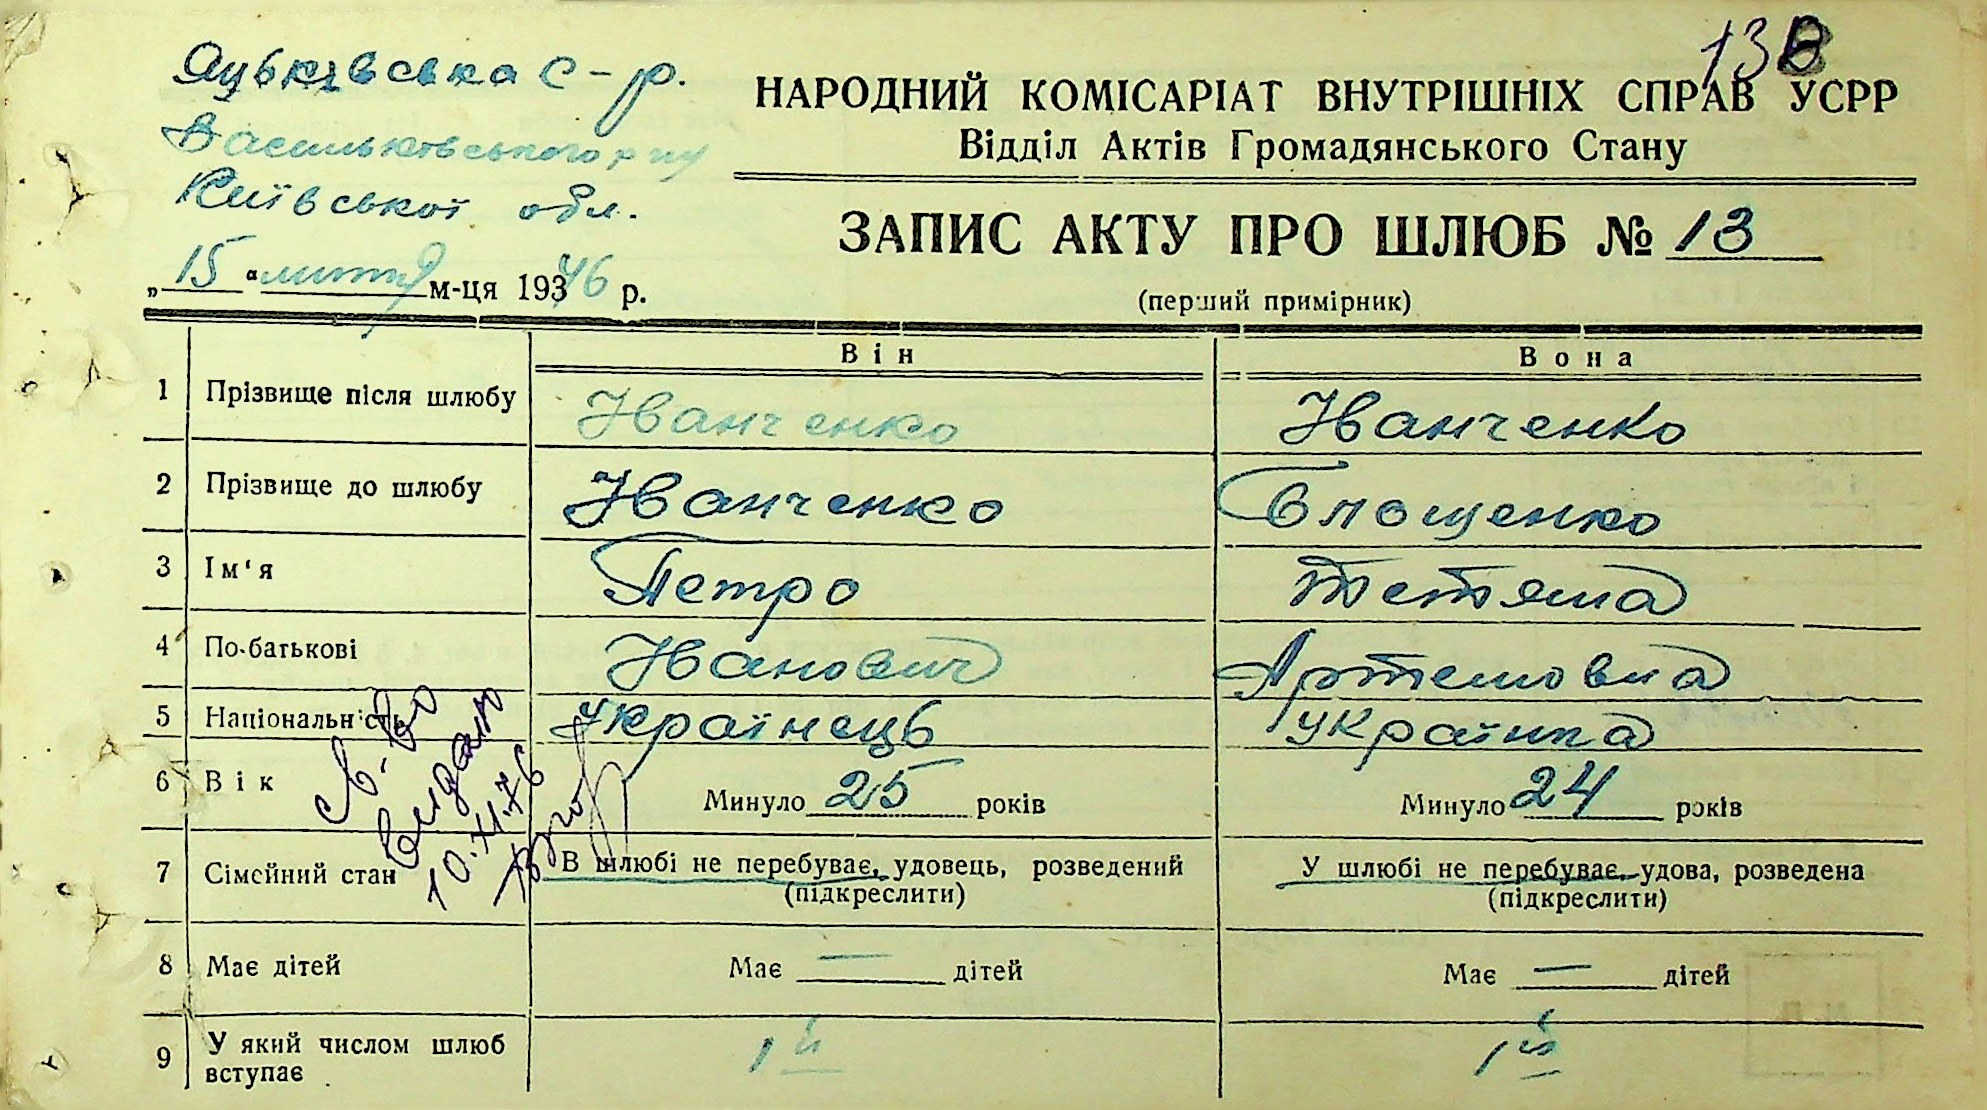 Яцьківська с-р.
Васильківського р-ну
Київської обл.
„15" лютня м-ця 1946 р.
138
НАРОДНИЙ КОМІСАРІАТ ВНУТРІШНІХ СПРАВ УСРР
Відділ Актів Громадянського Стану
ЗАПИС АКТУ ПРО ШЛЮБ № 13
(перший примірник)
Він Вона
1 Прізвище після шлюбу Іванченко Іванченко
2 Прізвище до шлюбу Іванченко Блощенко
3 Ім'я Петро Тетяна
4 По-батькові Іванович Артемовна
5 Національність українець українка
6 Вік Минуло 25 років Минуло 24 років
7 Сімейний стан В шлюбі не перебуває, удовець, розведений У шлюбі не перебуває, удова, розведена
(підкреслити) (підкреслити)
8 Має дітей Має — дітей Має — дітей
9 У який числом шлюб вступає 1й 1й
с-во
видано
10.XI.76